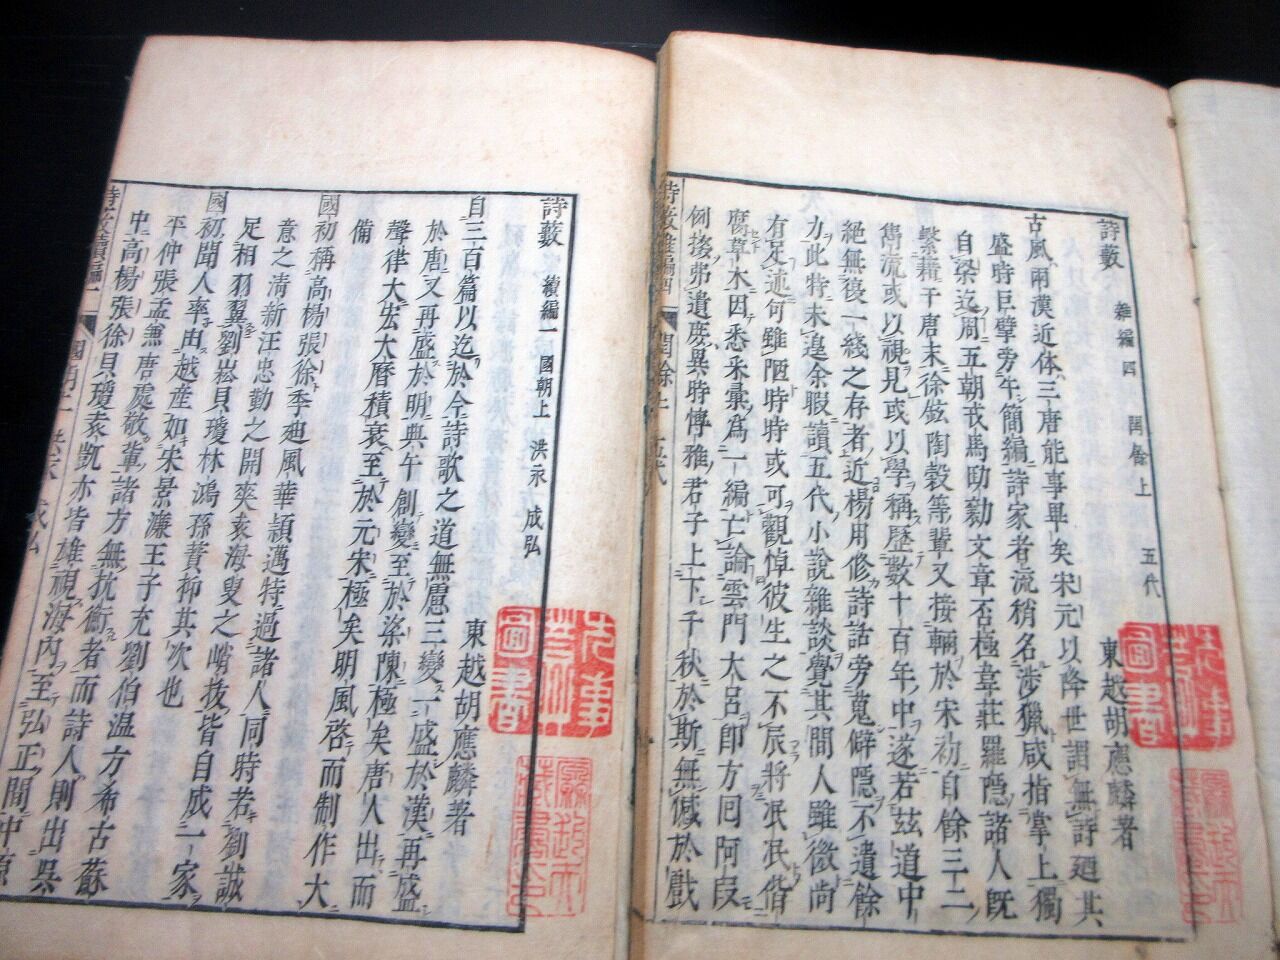 詩藪 雜編四 閏餘上 五代
東越胡應麟著
古風兩漢近體三唐能事畢矣宋元以降世謂無詩廼其
盛時巨擘旁午簡編詩家者流稍名涉獵咸指掌上獨
自梁迄周五朝戎馬劻勷文章否極韋莊羅隱諸人旣
繫籍于唐末徐鉉陶穀等輩又接輛於宋初自餘三二
雋流或以視見或以學稱歷數十百年中遂若茲道中
絕無復一綫之存者近楊用修詩話旁蒐僻隱不遺餘
力此特未遑余暇讀五代小說雜談覺其間人雖微尚
有足述何雖陋時時或可觀悼彼生之不辰將泯泯偕
腐草木因悉采彙爲一編亡論雲門大呂卽方囘阿叚
例掞弗遺庶異時博雅君子上下千秋於斯無憾於戲
詩藪雜編四 閏餘上 五代
詩藪 續編一 國朝上 洪永 成弘
東越胡應麟著
自三百篇以迄於今詩歌之道無慮三變一盛於漢再盛
於唐又再盛於明典午創變至於梁陳極矣唐人出而
聲律大宏大曆積衰至於元宋極矣明風啓而制作大
備
國初稱高楊張徐季迪風華頴邁特過諸人同時若劉誠
意之淸新汪忠勤之開爽袁海叟之峭拔皆自成一家
足相羽翼劉崧貝瓊林鴻孫蕡抑其次也
國初聞人率由越産如宋景濂王子充劉伯温方希古蘇
平仲張孟兼唐處敬輩諸方無抗衡者而詩人則出吳
中高楊張徐貝瓊袁凱亦皆雄視海内至弘正間中原
詩藪續編一 國朝上 洪永 成弘